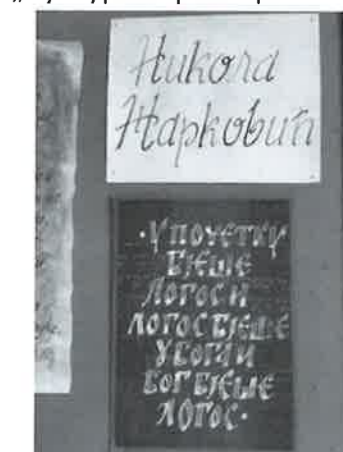 Никола
Жарковић
·У ПОЧЕТКУ
БЈЕШЕ
ЛОГОС И
ЛОГОС БЈЕШЕ
У БОГА И
БОГ БЈЕШЕ
ЛОГОС·